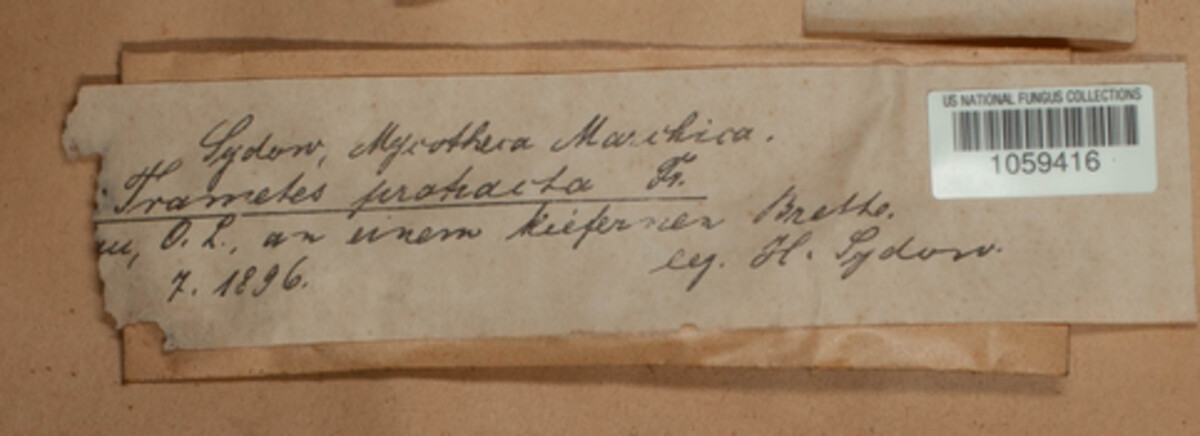 US NATIONAL FUNGUS COLLECTIONS
1059416
Sydow, Mycotheca Marchica.
Trametes protracta Fr.
O. L., an einem kiefernen Brette.
leg. H. Sydow.
7. 1896.